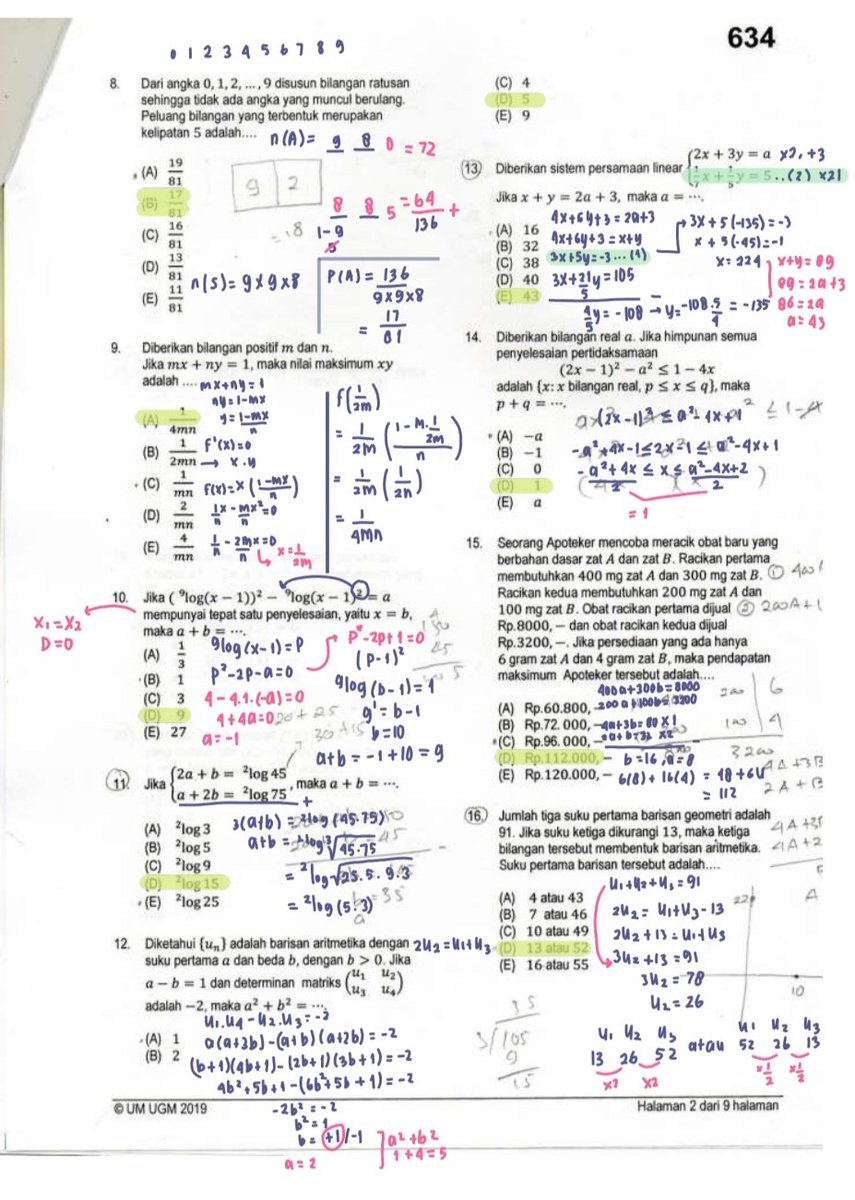 634
0 1 2 3 4 5 6 7 8 9
8. Dari angka 0, 1, 2, ..., 9 disusun bilangan ratusan
sehingga tidak ada angka yang muncul berulang.
Peluang bilangan yang terbentuk merupakan
kelipatan 5 adalah....
n(A) = 9 8 0 = 72
(A) 19/81
(B) 17/81
(C) 16/81
(D) 13/81
(E) 11/81
9 2
8 8 5 = 64 +
1-9
136
n(S) = 9 x 9 x 8
P(A) = 136
9 x 9 x 8
= 17
81
9. Diberikan bilangan positif m dan n.
Jika mx + ny = 1, maka nilai maksimum xy
adalah ....
mx+ny=1
ny=1-mx
y=1-mx/n
(A) 1/4mn
(B) 1/2mn
(C) 1/mn
(D) 2/mn
(E) 4/mn
f'(x)=0
→ x.y
f(x)=x(1-mx/n)
1/n x - mx²/n =0
1/n - 2mx/n =0
x=1/2m
f(1/2m)
= 1/2m (1-m.1/2m / n)
= 1/2m (1/2n)
= 1/4mn
10. Jika (⁹log(x − 1))² − ⁹log(x − 1)² = a
mempunyai tepat satu penyelesaian, yaitu x = b,
maka a + b = ⋯.
x₁=x₂
D=0
(A) 1/3
(B) 1
(C) 3
(D) 9
(E) 27
9log(x-1)=P
P²-2P-a=0
4-4.1.(-a)=0
4+4a=0
a=-1
P²-2P+1=0
(P-1)²
9log(b-1)=1
9¹=b-1
b=10
a+b = -1+10 = 9
11. Jika {2a + b = ²log 45
a + 2b = ²log 75 , maka a + b = ⋯.
+
(A) ²log 3
(B) ²log 5
(C) ²log 9
(D) ²log 15
(E) ²log 25
3(a+b) = ²log(45.75)
a+b = ²log ³√45.75
= ²log √25.5.9.3
= ²log (5.3)
12. Diketahui {uₙ} adalah barisan aritmetika dengan
suku pertama a dan beda b, dengan b > 0. Jika
a − b = 1 dan determinan matriks (u₁ u₂
u₃ u₄)
adalah −2, maka a² + b² = ⋯.
(A) 1
(B) 2
u₁.u₄ - u₂.u₃ = -2
a(a+3b) - (a+b)(a+2b) = -2
(b+1)(4b+1) - (2b+1)(3b+1) = -2
4b²+5b+1-(6b²+5b+1) = -2
-2b² = -2
b² = 1
b = +1/-1
a = 2
a²+b²
1+4=5
(C) 4
(D) 5
(E) 9
13 Diberikan sistem persamaan linear {2x + 3y = a x2, +3
1/7 x + 1/5 y = 5 ..(2) x21
Jika x + y = 2a + 3, maka a = ⋯.
(A) 16
(B) 32
(C) 38
(D) 40
(E) 43
4x+6y+3=2a+3
4x+6y+3=x+y
3x+5y=-3...(1)
3x+21/5 y=105
4/5 y = -108 → y=-108.5/4 = -135
3x+5(-135)=-3
x+5(-45)=-1
x=224
x+y=89
89=2a+3
86=2a
a=43
14. Diberikan bilangan real a. Jika himpunan semua
penyelesaian pertidaksamaan
(2x − 1)² − a² ≤ 1 − 4x
adalah {x: x bilangan real, p ≤ x ≤ q}, maka
p + q = ⋯.
(A) −a
(B) −1
(C) 0
(D) 1
(E) a
-a²+4x-1≤2x-1≤a²-4x+1
-a²+4x/2 ≤ x ≤ a²-4x+2/2
=1
15. Seorang Apoteker mencoba meracik obat baru yang
berbahan dasar zat A dan zat B. Racikan pertama
membutuhkan 400 mg zat A dan 300 mg zat B.
Racikan kedua membutuhkan 200 mg zat A dan
100 mg zat B. Obat racikan pertama dijual
Rp.8000, − dan obat racikan kedua dijual
Rp.3200, −. Jika persediaan yang ada hanya
6 gram zat A dan 4 gram zat B, maka pendapatan
maksimum Apoteker tersebut adalah....
(A) Rp.60.800, −
(B) Rp.72.000, −
(C) Rp.96.000, −
(D) Rp.112.000, −
(E) Rp.120.000, −
400a+300b=8000
200a+100b=3200
4a+3b=80 x1
b=16, a=8
6(8)+16(4) = 48+64
= 112
16 Jumlah tiga suku pertama barisan geometri adalah
91. Jika suku ketiga dikurangi 13, maka ketiga
bilangan tersebut membentuk barisan aritmetika.
Suku pertama barisan tersebut adalah....
2u₂=u₁+u₃
(A) 4 atau 43
(B) 7 atau 46
(C) 10 atau 49
(D) 13 atau 52
(E) 16 atau 55
u₁+u₂+u₃=91
2u₂=u₁+u₃-13
2u₂+13=u₁+u₃
3u₂+13=91
3u₂=78
u₂=26
22
10
35
3/105
9
15
u₁ u₂ u₃ atau u₁ u₂ u₃
13 26 52 52 26 13
x2 x2 x1/2 x1/2
© UM UGM 2019
Halaman 2 dari 9 halaman